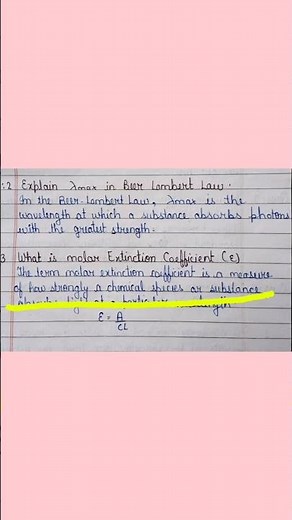 :2 Explain λmax in Beer Lambert Law.
In the Beer-Lambert Law, λmax is the
wavelength at which a substance absorbs photons
with the greatest strength.
3 What is molar Extinction Coefficient (ε)
The term molar extinction coefficient is a measure
of how strongly a chemical species or substance
absorbs light at a particular wavelength
ε = A
CL